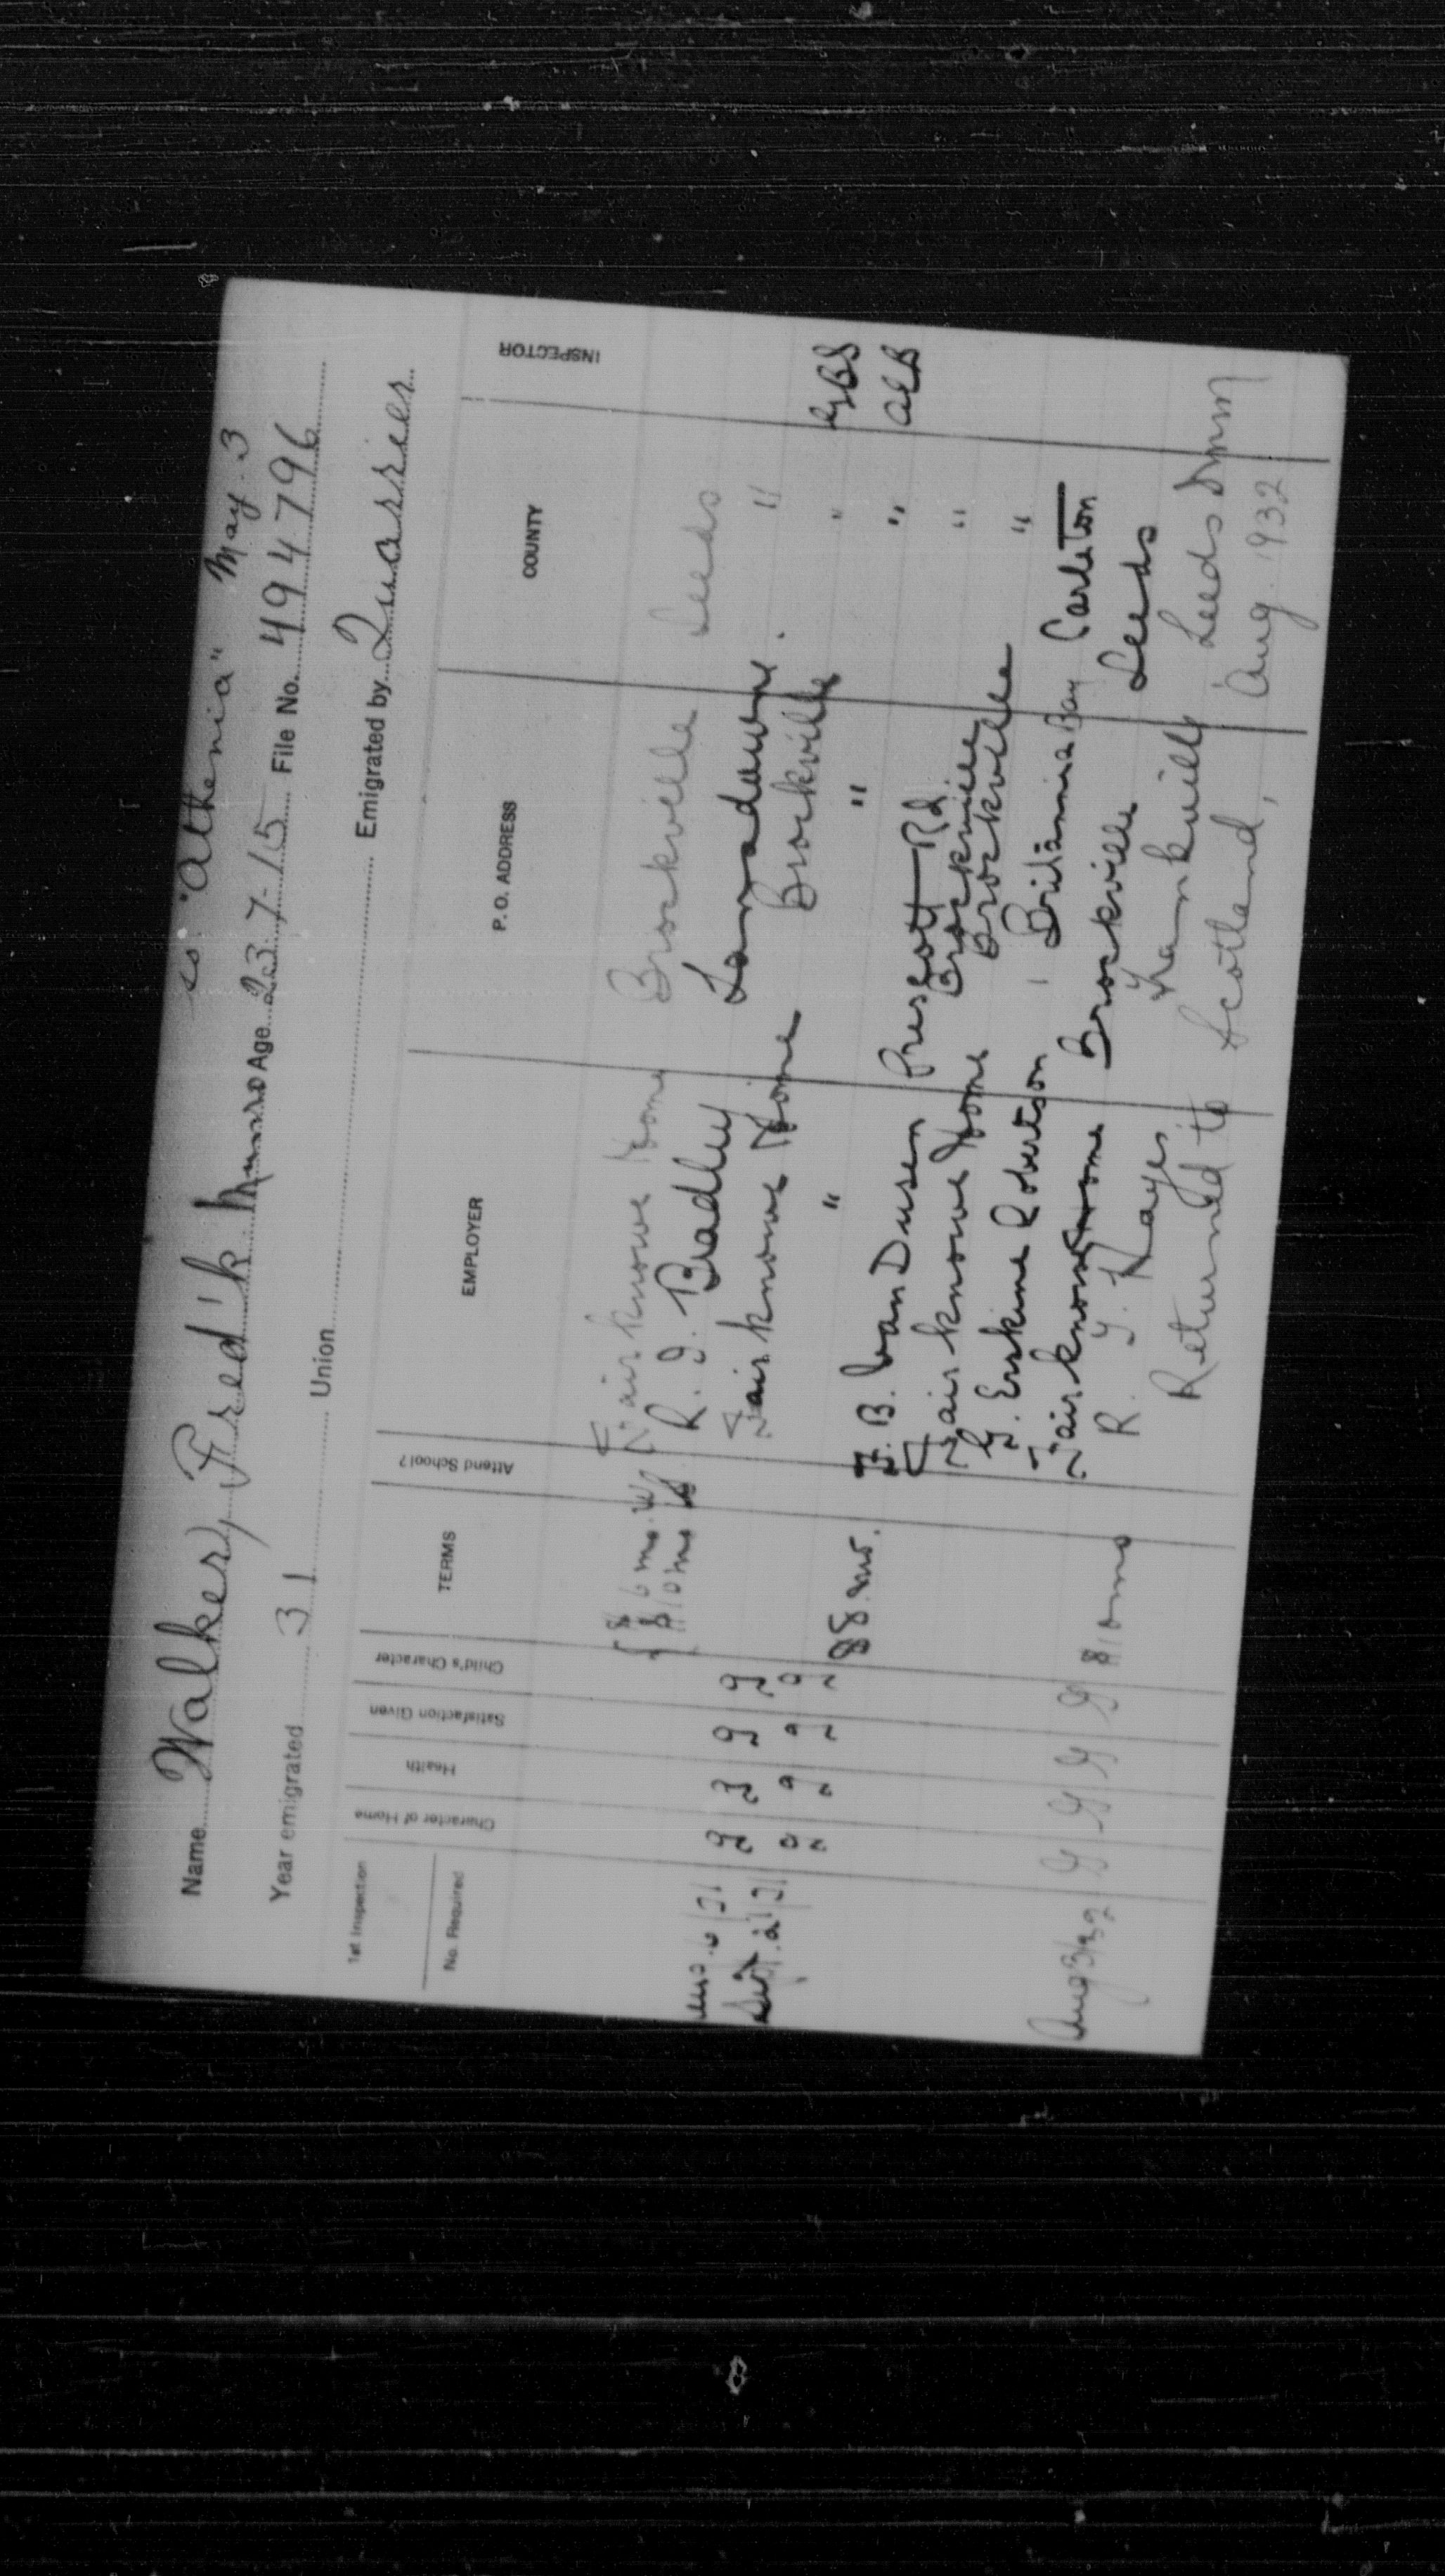 ss "Athenia" May. 3
Name Walker, Fred'k Munro Age 23-7-15 File No. 494796
Year emigrated 31 Union Emigrated by Quarrier
1st Inspection Character of Home Health Satisfaction Given Child's Character TERMS Attend School? EMPLOYER P. O. ADDRESS COUNTY INSPECTOR
No. Required
Fairknowe Home Brockville Leeds
$8 6 mo. R. J. Bradley Lansdowne "
$10 mo
Fairknowe Home Brockville "
Aug. 6/31 g g g g " " " GBS
Sept. 21/31 g g g g
$8. mo. F. B. Van Dusen Prescott Rd. Brockville " AEB
Fairknowe Home Brockville "
G. Erskine Robertson Britannia Bay Carleton
Fairknowe Home Brockville Leeds
Aug 31/32 G G G G $10 mo R. J. Hayes Frankville Leeds
Returned to Scotland, Aug. 1932